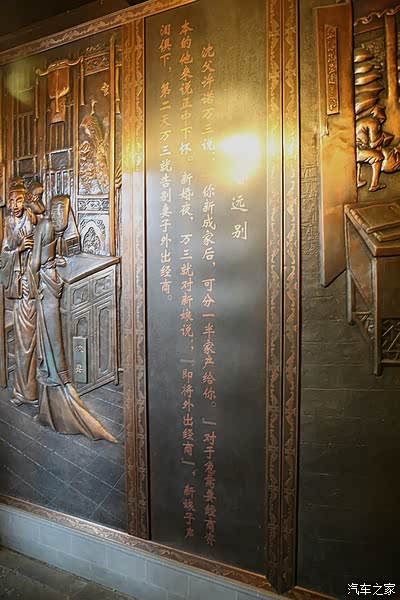 远别
沈父许诺万三说，「你新成家后，可分一半家产给你。」对于急需要经商资
本的他来说正中下怀。新婚夜，万三就对新娘说：「即将外出经商」，新娘子声
泪俱下，第二天万三就告别妻子外出经商。
汽车之家